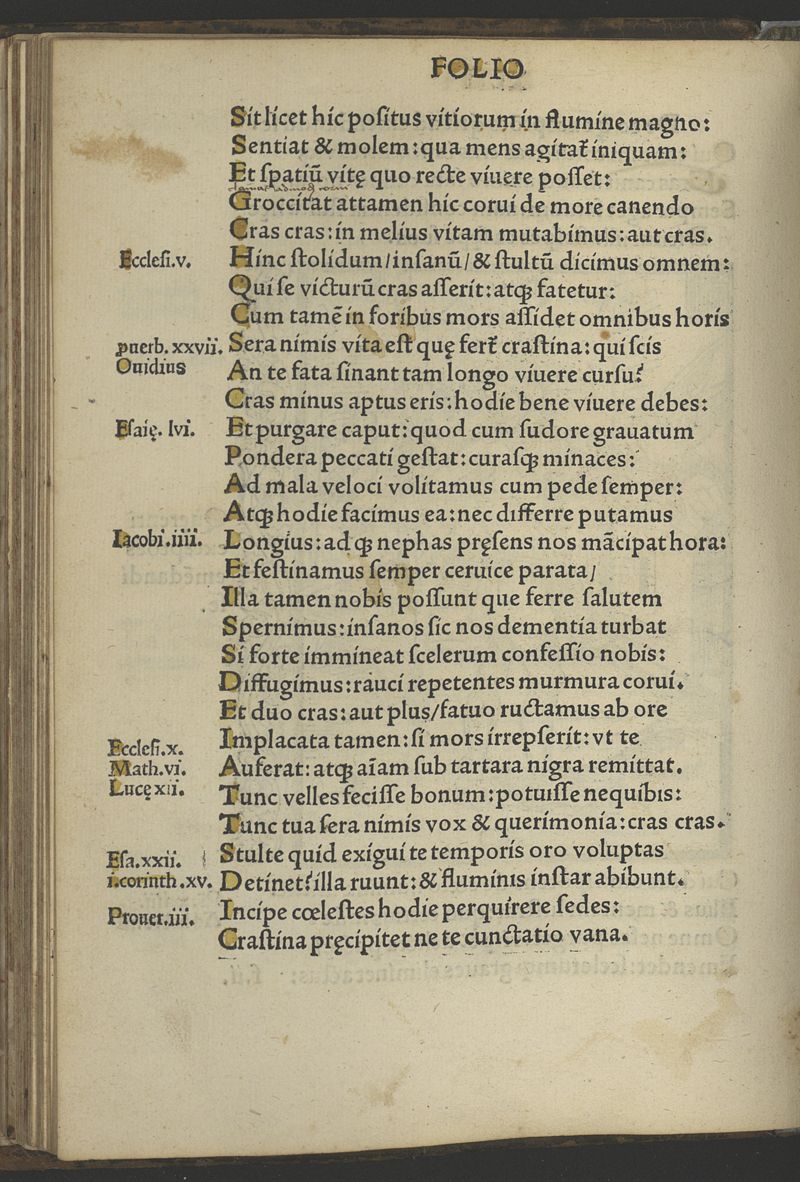 FOLIO
Sit licet hic positus vitiorum in flumine magno:
Sentiat & molem: qua mens agitat᷑ iniquam:
Et spatiũ vitę quo recte viuere posset:
Groccitat attamen hic corui de more canendo
Cras cras: in melius vitam mutabimus: aut cras.
Ecclesi.v. Hinc stolidum/insanũ/& stultũ dicimus omnem:
Qui se victurũ cras asserit: atqꝫ fatetur:
Cum tamẽ in foribus mors assidet omnibus horis
ꝓuerb. xxvii. Sera nimis vita est quę fert᷑ crastina: qui scis
Ouidius An te fata sinant tam longo viuere cursu?
Cras minus aptus eris: hodie bene viuere debes:
Esaię. lvi. Et purgare caput: quod cum sudore grauatum
Pondera peccati gestat: curasqꝫ minaces:
Ad mala veloci volitamus cum pede semper:
Atqꝫ hodie facimus ea: nec differre putamus
Iacobi.iiii. Longius: adqꝫ nephas pręsens nos mãcipat hora:
Et festinamus semper ceruice parata/
Illa tamen nobis possunt que ferre salutem
Spernimus: insanos sic nos dementia turbat
Si forte immineat scelerum confessio nobis:
Diffugimus: rauci repetentes murmura corui.
Et duo cras: aut plus/fatuo ructamus ab ore
Ecclesi.x. Implacata tamen: si mors irrepserit: vt te
Math.vi. Auferat: atqꝫ aĩam sub tartara nigra remittat.
Lucę xii. Tunc velles fecisse bonum: potuisse nequibis:
Tunc tua sera nimis vox & querimonia: cras cras.
Esa.xxii. Stulte quid exigui te temporis oro voluptas
i.corinth.xv. Detinet? illa ruunt: & fluminis instar abibunt.
Prouer.iii. Incipe cœlestes hodie perquirere sedes:
Crastina pręcipitet ne te cunctatio vana.